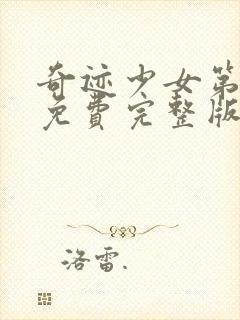 奇迹少女第
免費完整版
洛雷.